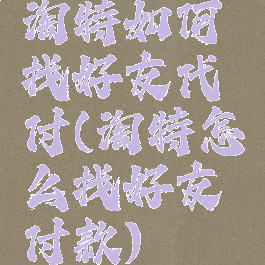 淘特如何
找好友代
付(淘特怎
么找好友
付款)